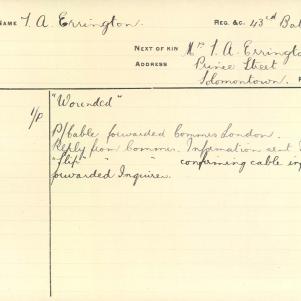 NAME T. A. Errington. REG. &C. 43rd Bat
NEXT OF KIN Mrs T. A. Errington
ADDRESS Prince Street
Solomontown.
"Wounded"
P/Cable forwarded Commrs London.
Reply from Commrs. Information sent
"Slip" " " confirming cable
forwarded Inquirer.